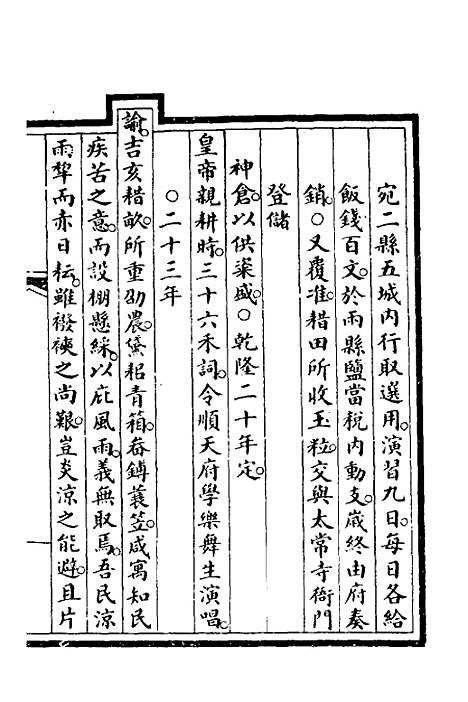 宛二縣五城内行取選用。演習九日。每日各給
飯錢百文。於兩縣鹽當税内動支。歲終由府奏
銷。○又覆准。耤田所收玉粒。交與太常寺衙門
登儲
神倉。以供粢盛。○乾隆二十年定。
皇帝親耕時。三十六禾詞。令順天府學樂舞生演唱。
○二十三年
諭。吉亥耤畝。所重劭農。黛耜青箱。畚鎛蓑笠。咸寓知民
疾苦之意。而設棚懸綵。以庇風雨。義無取焉。吾民涼
雨犂而赤日耘。雖襏襫之尚艱。豈炎涼之能避。且片